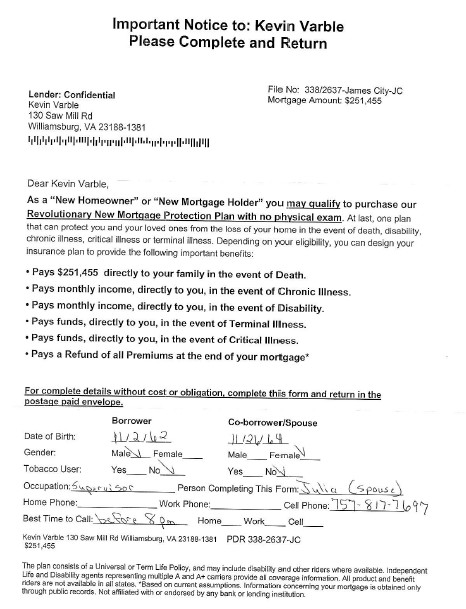 Important Notice to: Kevin Varble
Please Complete and Return
File No: 338/2637-James City-JC
Mortgage Amount: $251,455
Lender: Confidential
Kevin Varble
130 Saw Mill Rd
Williamsburg, VA 23188-1381
Dear Kevin Varble,
As a “New Homeowner” or “New Mortgage Holder” you may qualify to purchase our
Revolutionary New Mortgage Protection Plan with no physical exam. At last, one plan
that can protect you and your loved ones from the loss of your home in the event of death, disability,
chronic illness, critical illness or terminal illness. Depending on your eligibility, you can design your
insurance plan to provide the following important benefits:
• Pays $251,455 directly to your family in the event of Death.
• Pays monthly income, directly to you, in the event of Chronic Illness.
• Pays monthly income, directly to you, in the event of Disability.
• Pays funds, directly to you, in the event of Terminal Illness.
• Pays funds, directly to you, in the event of Critical Illness.
• Pays a Refund of all Premiums at the end of your mortgage*
For complete details without cost or obligation, complete this form and return in the
postage paid envelope.
Borrower Co-borrower/Spouse
Date of Birth: 11/2/62 11/21/64
Gender: Male Female Male Female
Tobacco User: Yes No Yes No
Occupation: Supervisor Person Completing This Form: Julia (spouse)
Home Phone: Work Phone: Cell Phone: 757-817-7697
Best Time to Call: before 8pm Home Work Cell
Kevin Varble 130 Saw Mill Rd Williamsburg, VA 23188-1381 PDR 338-2637-JC
$251,455
The plan consists of a Universal or Term Life Policy, and may include disability and other riders where available. Independent
Life and Disability agents representing multiple A and A+ carriers provide all coverage information. All product and benefit
riders are not available in all states. *Based on current assumptions. Information concerning your mortgage is obtained only
through public records. Not affiliated with or endorsed by any bank or lending institution.